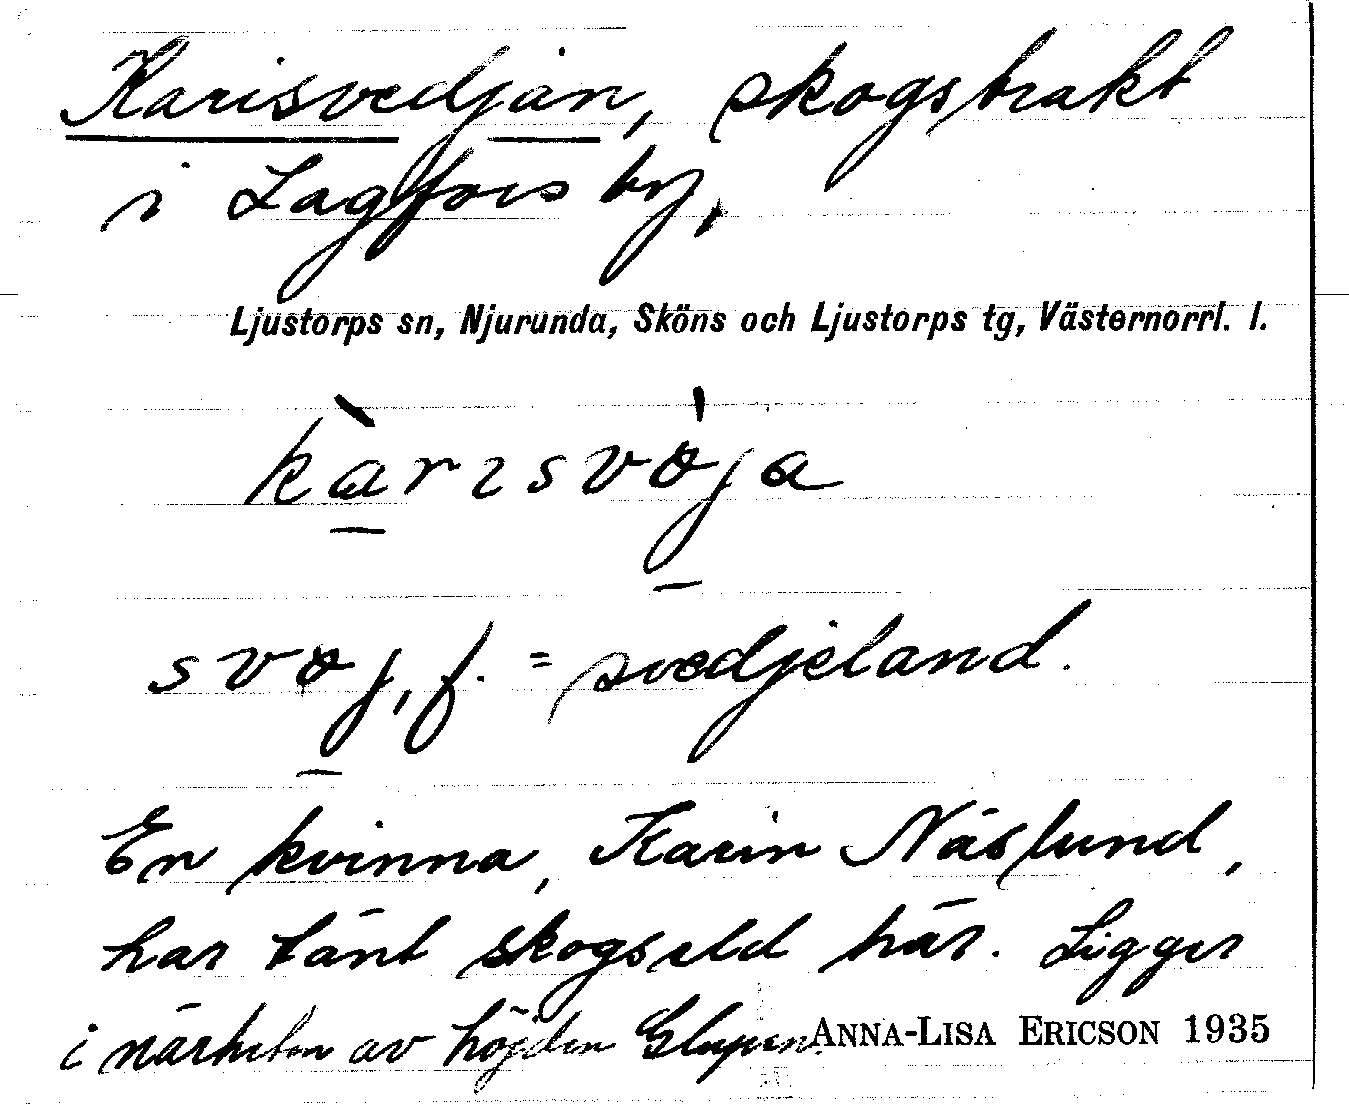 Karisvedjan, skogstrakt
i Lagfors by,
Ljustorps sn, Njurunda, Sköns och Ljustorps tg, Västernorrl. l.
kàrɪsvø̍ja
svøj, f. = svedjeland.
En kvinna, Karin Näslund,
har tänt skogseld här. Ligger
i närheten av höjden Glupen.
ANNA-LISA ERICSON 1935